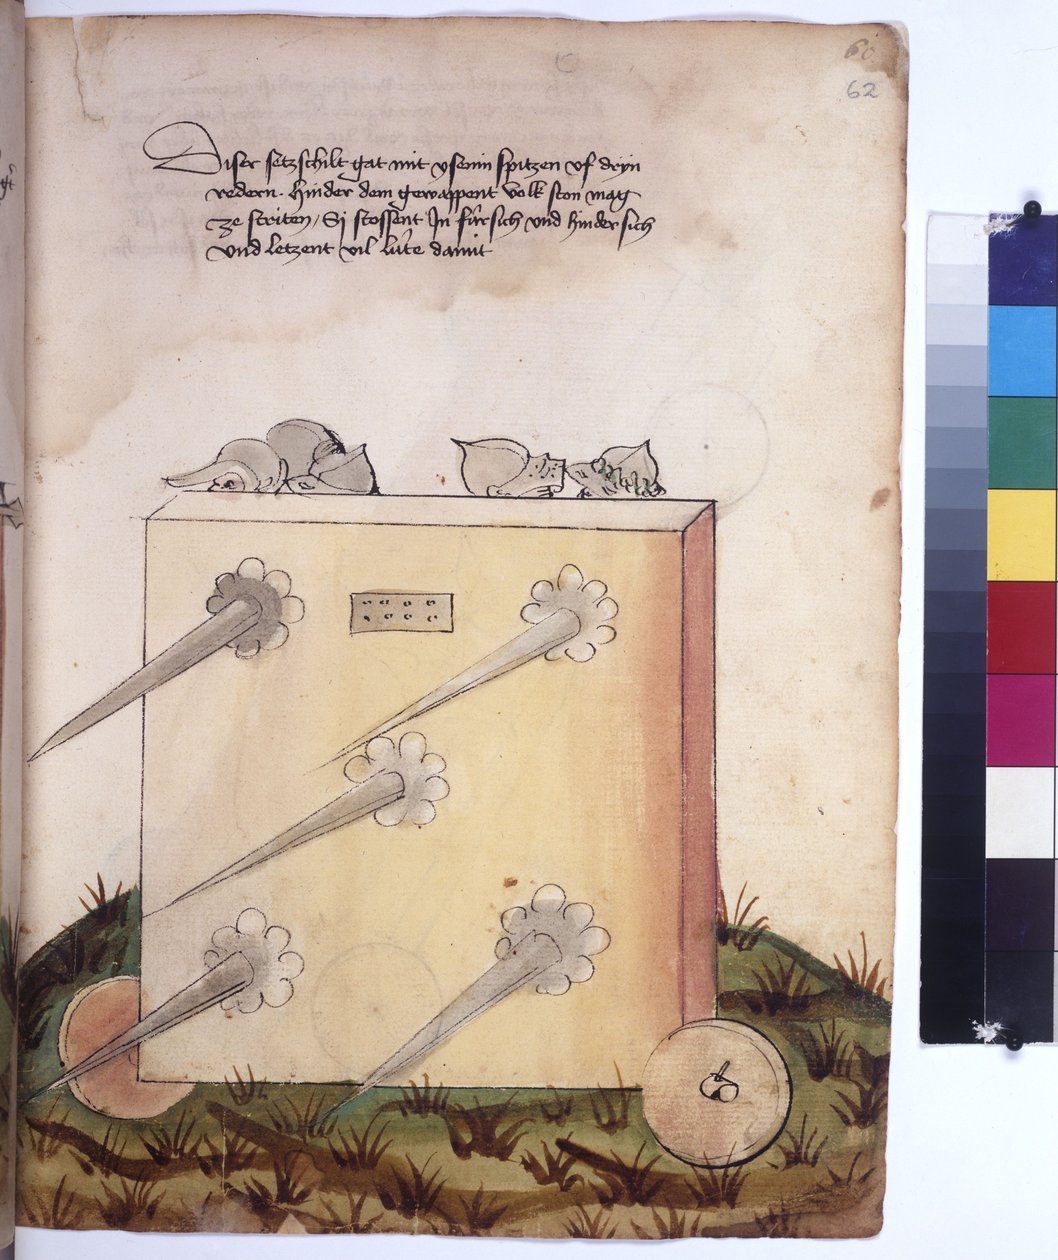 60
62
Diser setzschilt gat mit ysenin spitzen vf dryn
redern. Hinder dem gewappent volk ston mag
ze striten / Si stossent In fürsich vnd hindersich
vnd letzent vil lüte damit